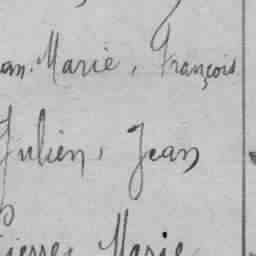 an-Marie, François
Julien, Jean
Pierre Marie